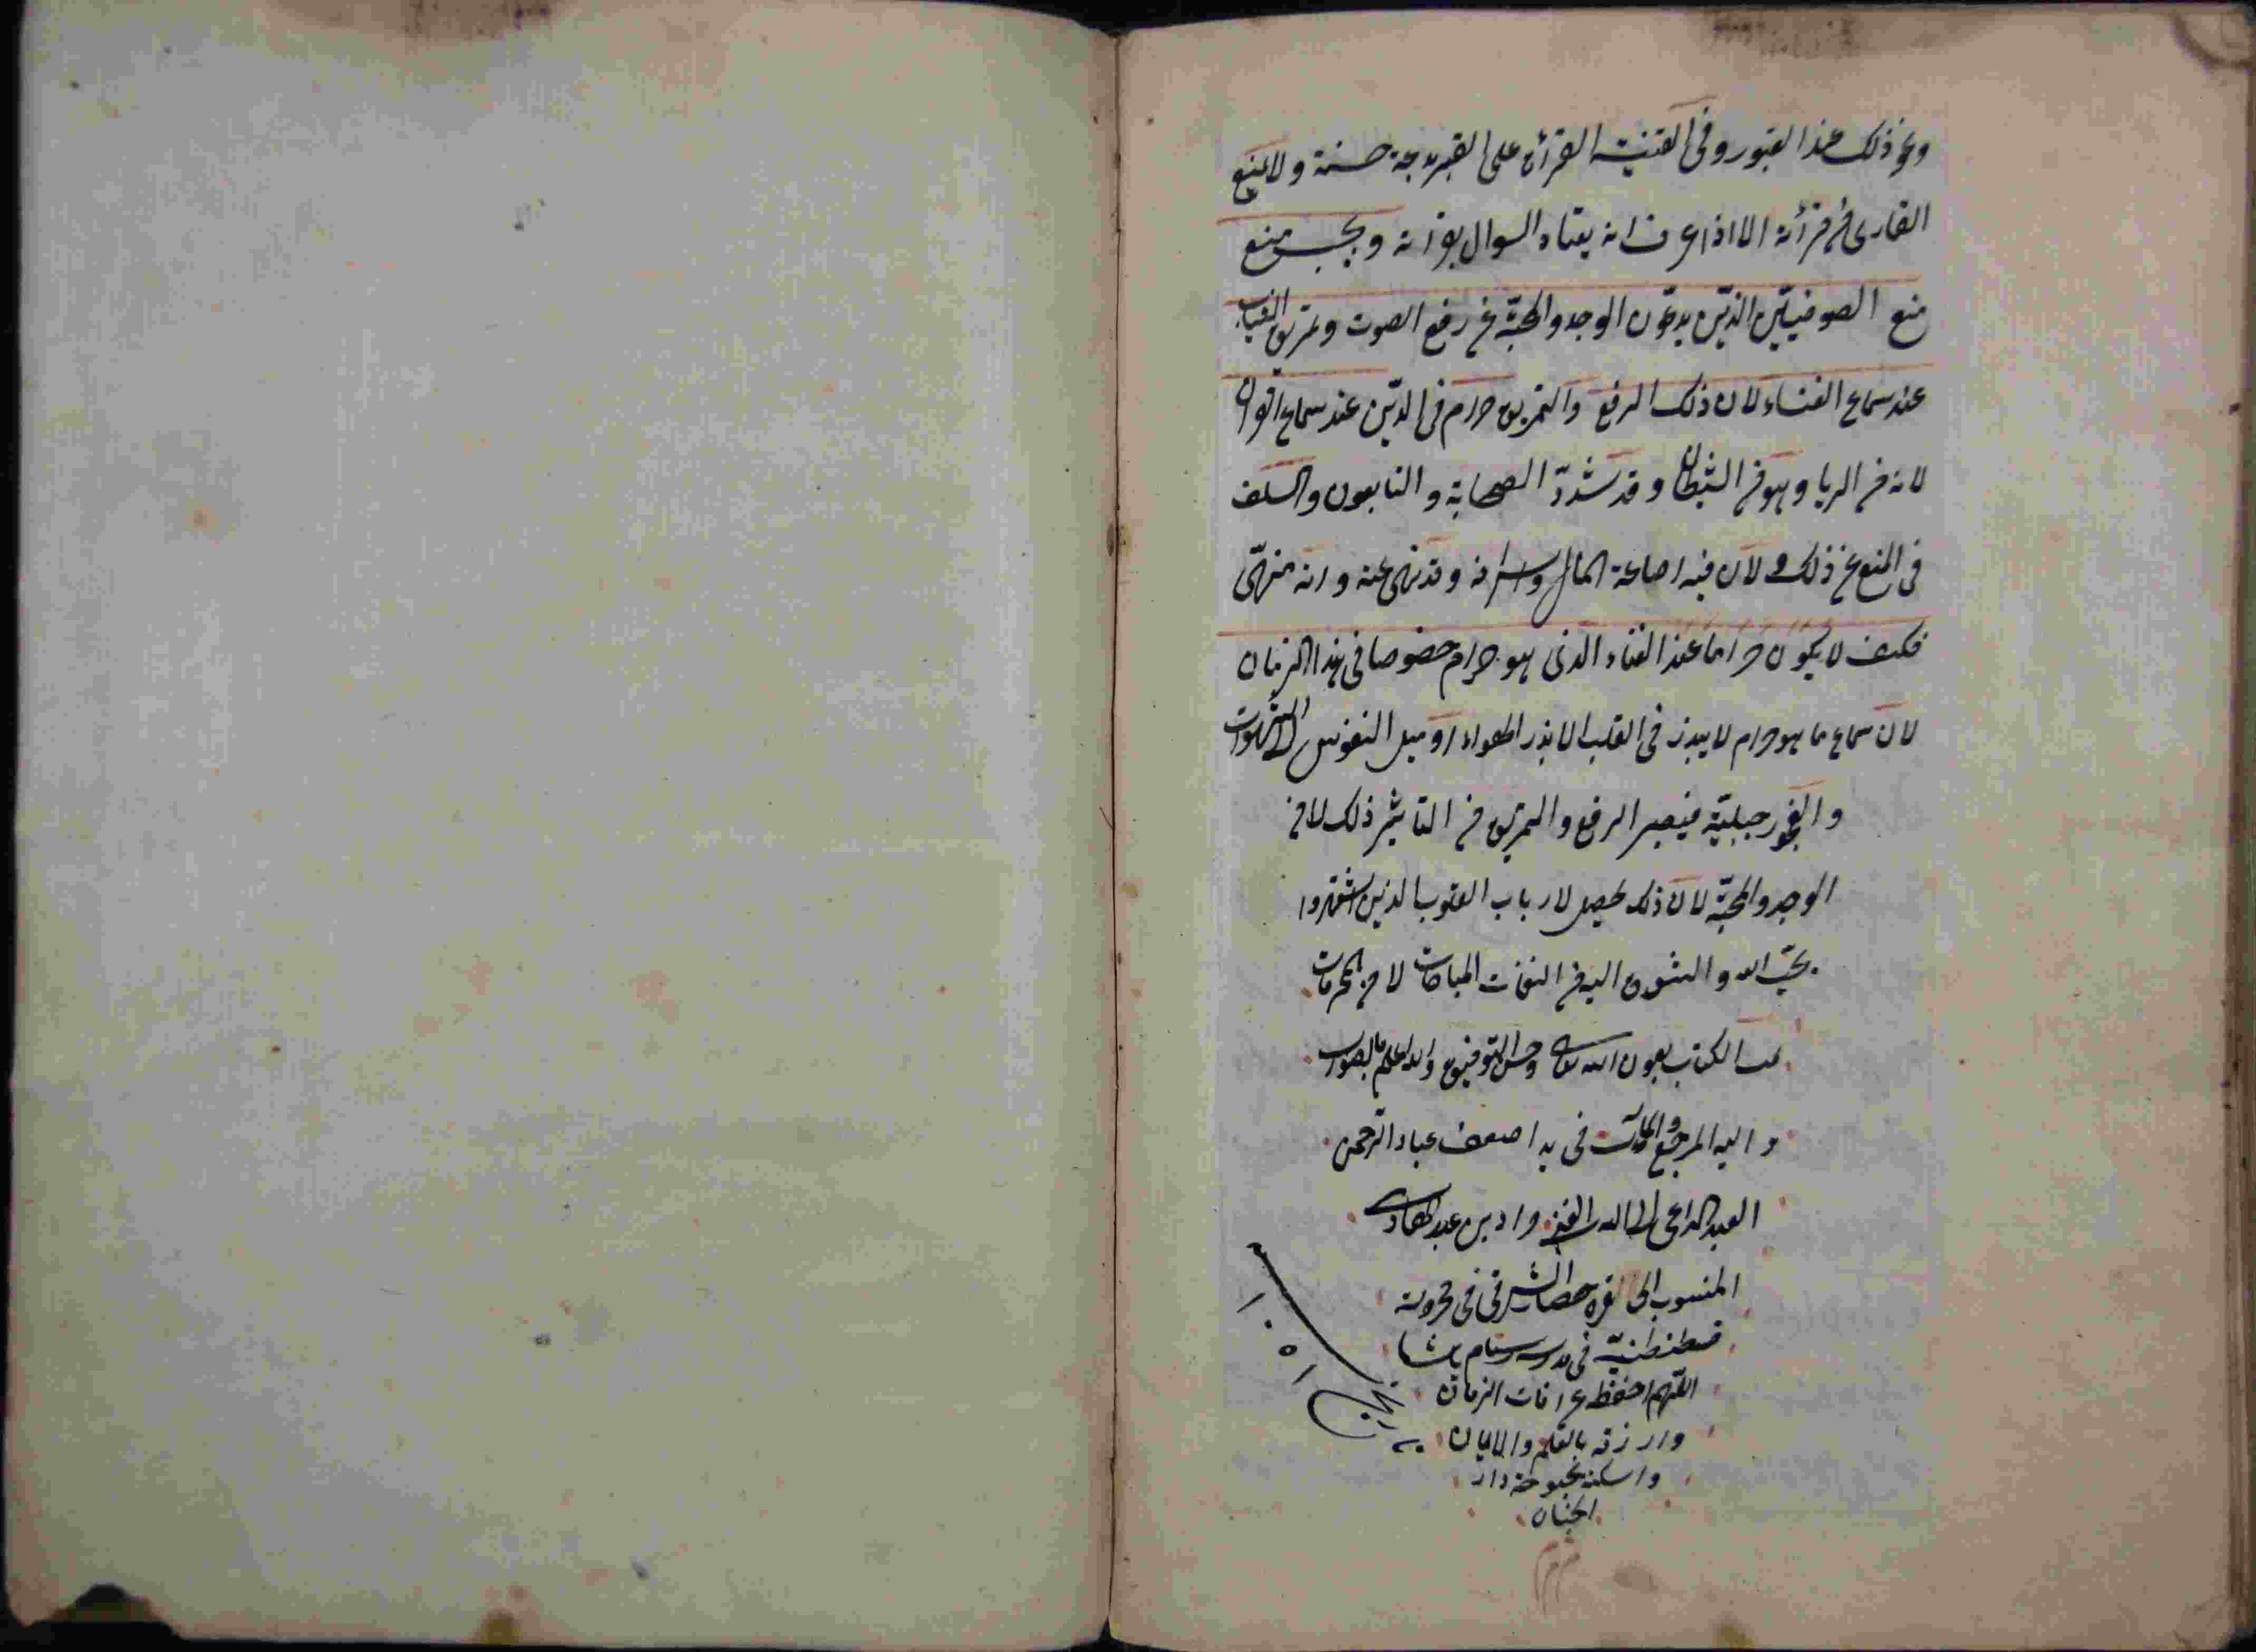 ونحو ذلك عند القبور وفى القنية القرآن على القبر بدعة حسنة ولا يمنع
القارى من قرأته الا اذا عرف انه يعتاد السوال بقرأته ويجب منع
منع الصوفيّين الذين يدعون الوجد والمحبّة عن رفع الصوت وتمزيق الثياب
عند سماع الغناء لان ذلك الرفع والتمزيق حرام فى الدّين عند سماع القرآن
لانه من الريا وهو من الشيطان وقد شدّد الصحابة والتابعون والسلف
فى المنع عن ذلك ولان فيه اضاعة المال واسرافه وقد نهى عنه وانه منهىّ
فكيف لا يكون حراما عند الغناء الذى هو حرام خصوصا فى هذا الزمان
لان سماع ما هو حرام لا يبذر فى القلب الا بذر الهواء وميل النفوس الى الشهوات
والفجور جبليّة فيصير الرفع والتمزيق من التأثير ذلك لا من
الوجد والمحبّة لان ذلك يحصل لارباب القلوب الذين اشتهروا
بحبّ الله والشوق اليه من المباحات لا من المحرمات
تمت الكتاب بعون الله تعالى وحسن التوفيق والله اعلم بالصواب
واليه المرجع والمآب فى يد اضعف عباد الرّحمن
العبد الداعى الى الله بن عبد الهادى
المنسوب الى قره حصار الشرقى فى محروسة
قسطنطنيّة فى مدرسة رستم پاشا
اللّهم احفظه عن آفات الزمان
وارزقه بالعلم والايمان
واسكنه بحبوحة دار
الجنان
سنة
١٠٥١